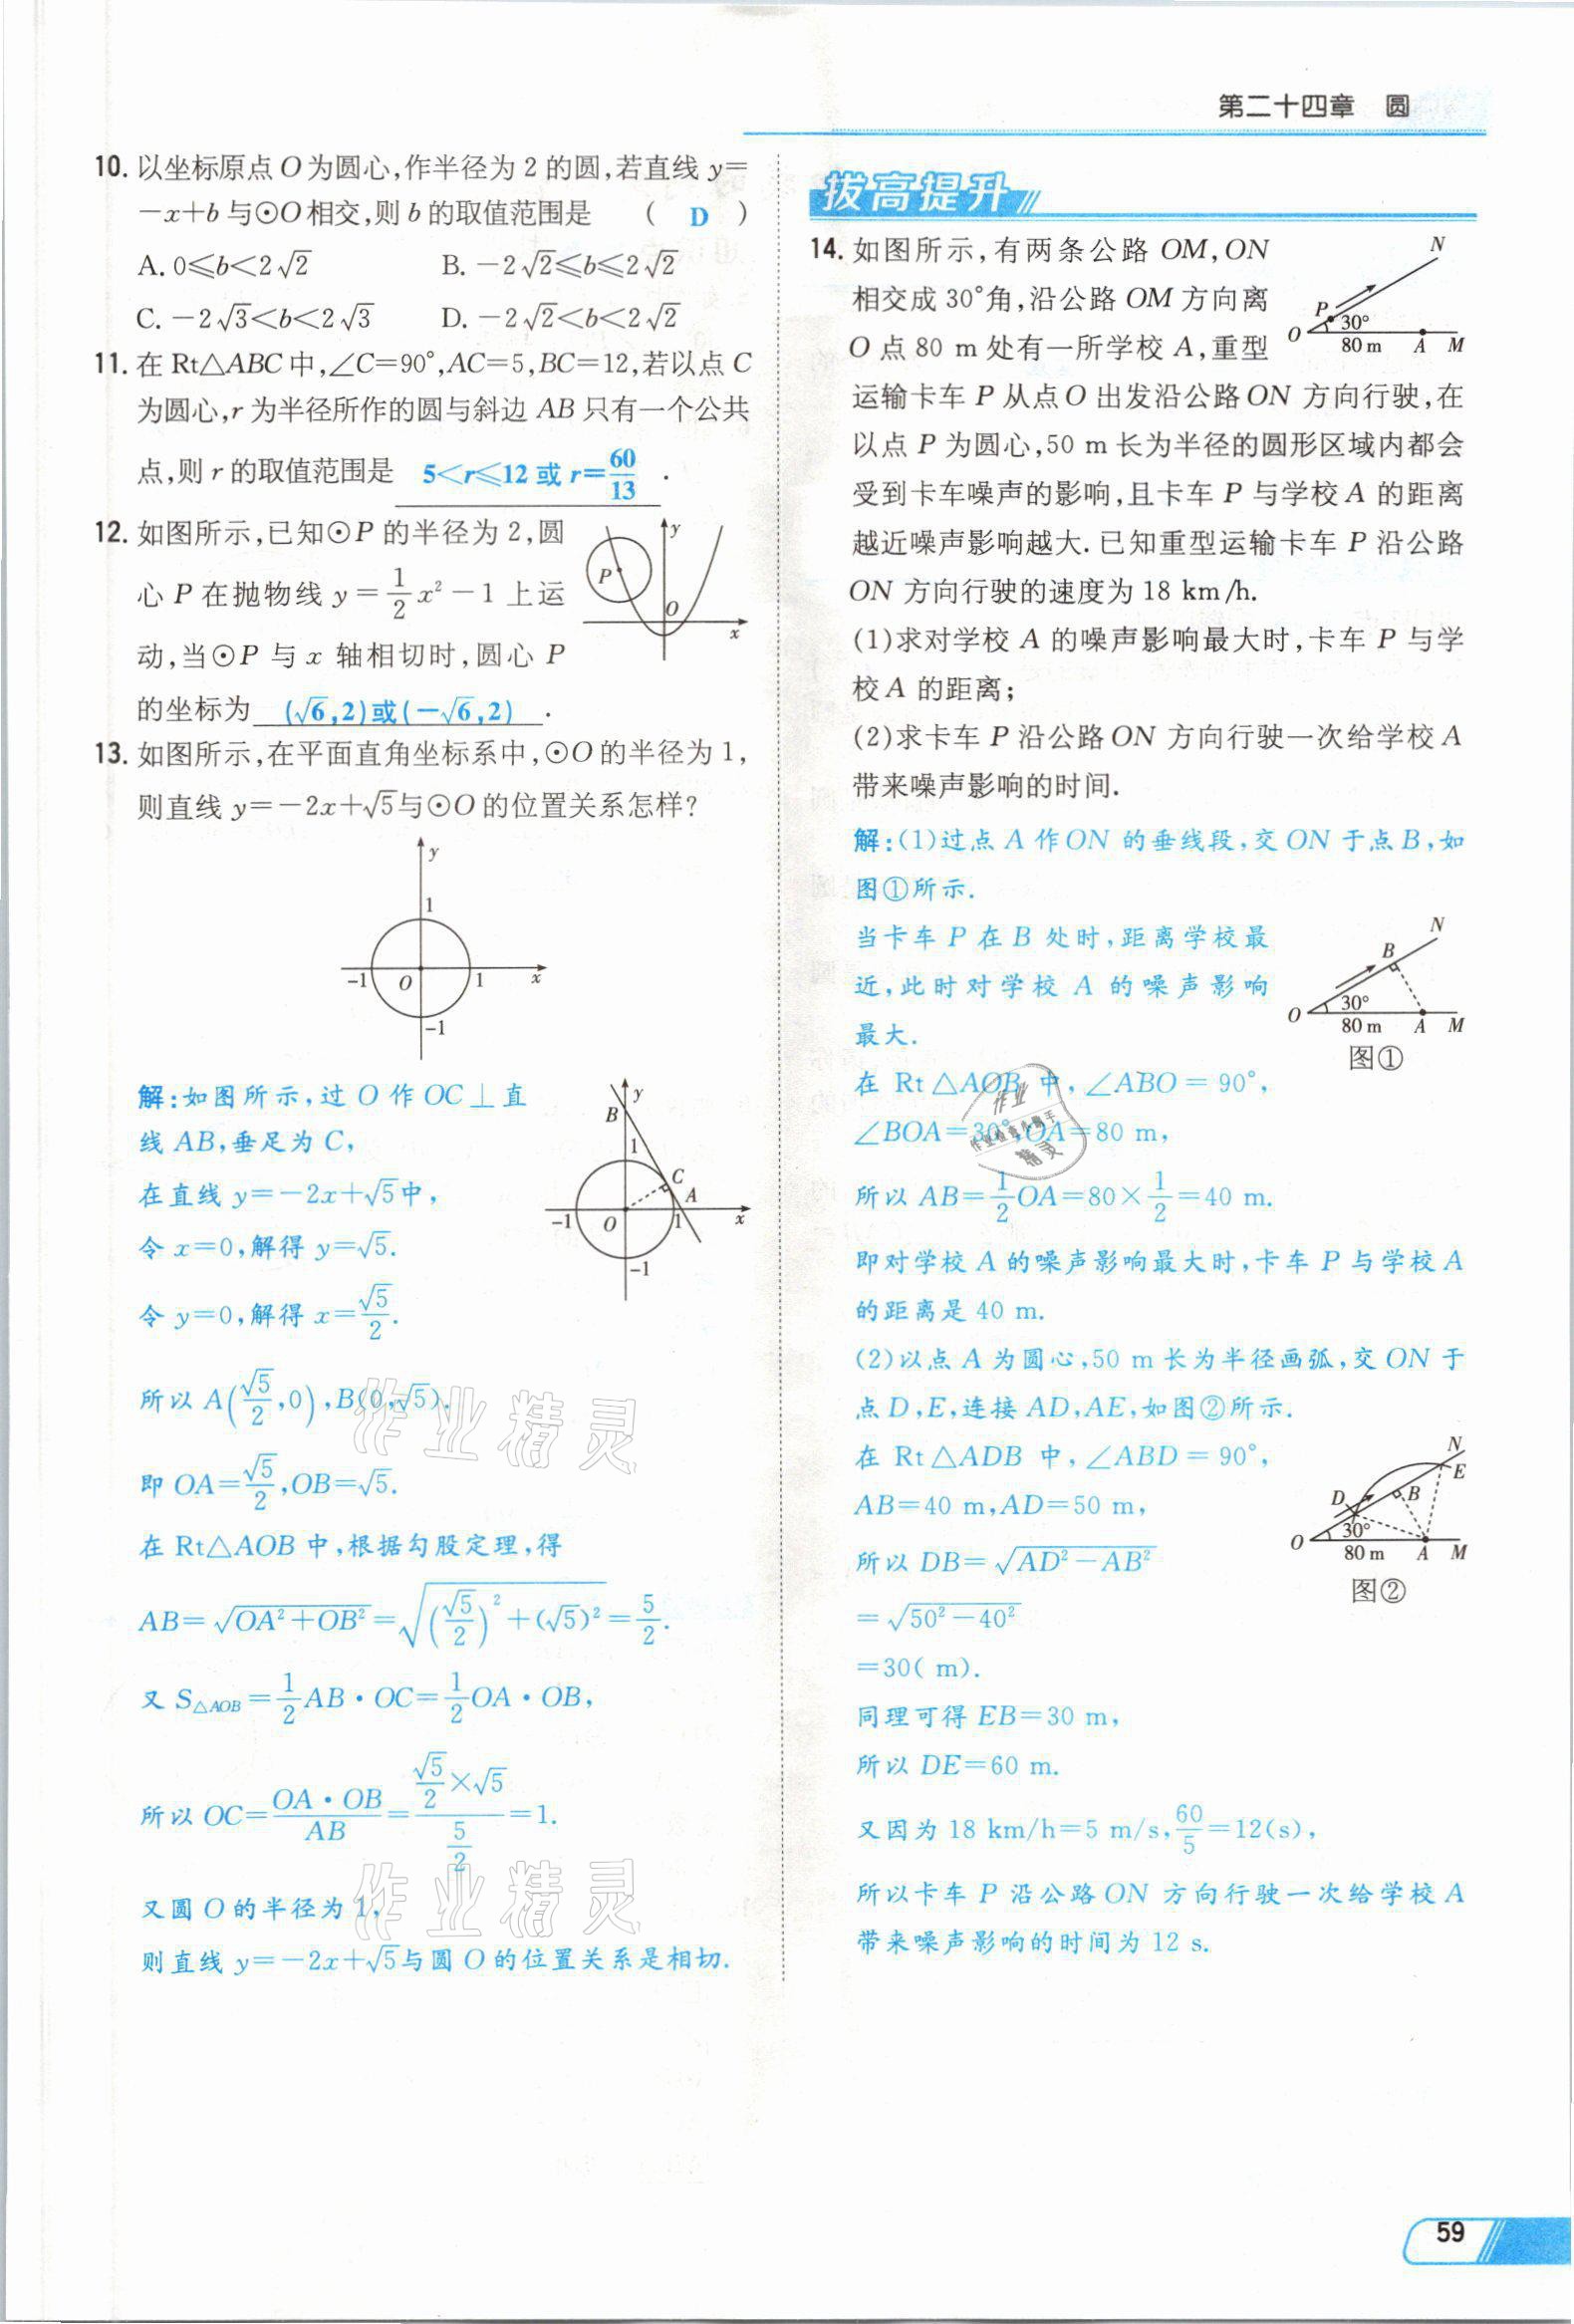 第二十四章 圆
10. 以坐标原点 O 为圆心,作半径为 2 的圆,若直线 y=
-x+b 与⊙O 相交,则 b 的取值范围是 ( D )
A. 0⩽b<2√2 B. -2√2⩽b⩽2√2
C. -2√3<b<2√3 D. -2√2<b<2√2
11. 在 Rt△ABC 中,∠C=90°,AC=5,BC=12,若以点 C
为圆心,r 为半径所作的圆与斜边 AB 只有一个公共
点,则 r 的取值范围是 5<r⩽12 或 r=60/13 .
12. 如图所示,已知⊙P 的半径为 2,圆
心 P 在抛物线 y=1/2x²-1 上运
动,当⊙P 与 x 轴相切时,圆心 P
的坐标为 (√6,2)或(-√6,2) .
y
P
O
x
13. 如图所示,在平面直角坐标系中,⊙O 的半径为 1,
则直线 y=-2x+√5与⊙O 的位置关系怎样?
y
1
-1 O 1 x
-1
解:如图所示,过 O 作 OC⊥直
线 AB,垂足为 C,
在直线 y=-2x+√5中,
令 x=0,解得 y=√5.
令 y=0,解得 x=√5/2.
y
B
1
C
A
-1 O 1 x
-1
所以 A(√5/2,0),B(0,√5).
即 OA=√5/2,OB=√5.
在 Rt△AOB 中,根据勾股定理,得
AB=√(OA²+OB²)=√((√5/2)²+(√5)²)=5/2.
又 S△AOB=1/2AB·OC=1/2OA·OB,
所以 OC=(OA·OB)/AB=(√5/2×√5)/(5/2)=1.
又圆 O 的半径为 1,
则直线 y=-2x+√5与圆 O 的位置关系是相切.
拔高提升
14. 如图所示,有两条公路 OM,ON
相交成 30°角,沿公路 OM 方向离
O 点 80 m 处有一所学校 A,重型
运输卡车 P 从点 O 出发沿公路 ON 方向行驶,在
以点 P 为圆心,50 m 长为半径的圆形区域内都会
受到卡车噪声的影响,且卡车 P 与学校 A 的距离
越近噪声影响越大.已知重型运输卡车 P 沿公路
ON 方向行驶的速度为 18 km/h.
N
P
30°
O 80 m A M
(1)求对学校 A 的噪声影响最大时,卡车 P 与学
校 A 的距离;
(2)求卡车 P 沿公路 ON 方向行驶一次给学校 A
带来噪声影响的时间.
解:(1)过点 A 作 ON 的垂线段,交 ON 于点 B,如
图①所示.
当卡车 P 在 B 处时,距离学校最
近,此时对学校 A 的噪声影响
最大.
N
B
30°
O 80 m A M
图①
在 Rt△AOB 中,∠ABO=90°,
∠BOA=30°,OA=80 m,
所以 AB=1/2OA=80×1/2=40 m.
即对学校 A 的噪声影响最大时,卡车 P 与学校 A
的距离是 40 m.
(2)以点 A 为圆心,50 m 长为半径画弧,交 ON 于
点 D,E,连接 AD,AE,如图②所示.
在 Rt△ADB 中,∠ABD=90°,
AB=40 m,AD=50 m,
所以 DB=√(AD²-AB²)
=√(50²-40²)
=30( m).
N
E
D B
30°
O 80 m A M
图②
同理可得 EB=30 m,
所以 DE=60 m.
又因为 18 km/h=5 m/s,60/5=12(s),
所以卡车 P 沿公路 ON 方向行驶一次给学校 A
带来噪声影响的时间为 12 s.
作业精灵
作业精灵
作业
精灵
59